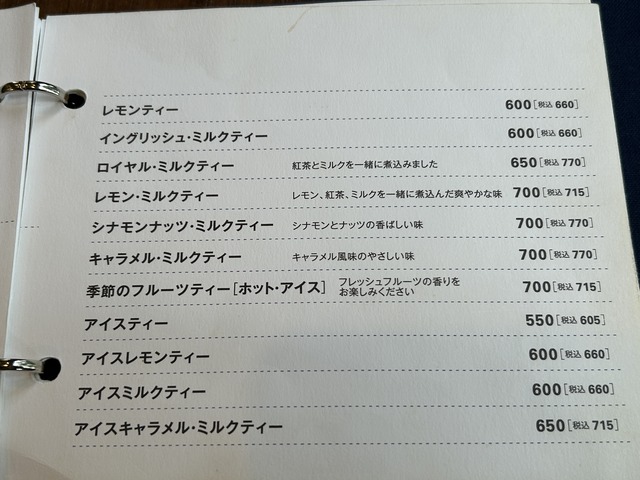 レモンティー 600[税込660]
イングリッシュ・ミルクティー 600[税込660]
ロイヤル・ミルクティー 紅茶とミルクを一緒に煮込みました 650[税込770]
レモン・ミルクティー レモン、紅茶、ミルクを一緒に煮込んだ爽やかな味 700[税込715]
シナモンナッツ・ミルクティー シナモンとナッツの香ばしい味 700[税込770]
キャラメル・ミルクティー キャラメル風味のやさしい味 700[税込770]
季節のフルーツティー[ホット・アイス] フレッシュフルーツの香りを 700[税込715]
お楽しみください
アイスティー 550[税込605]
アイスレモンティー 600[税込660]
アイスミルクティー 600[税込660]
アイスキャラメル・ミルクティー 650[税込715]